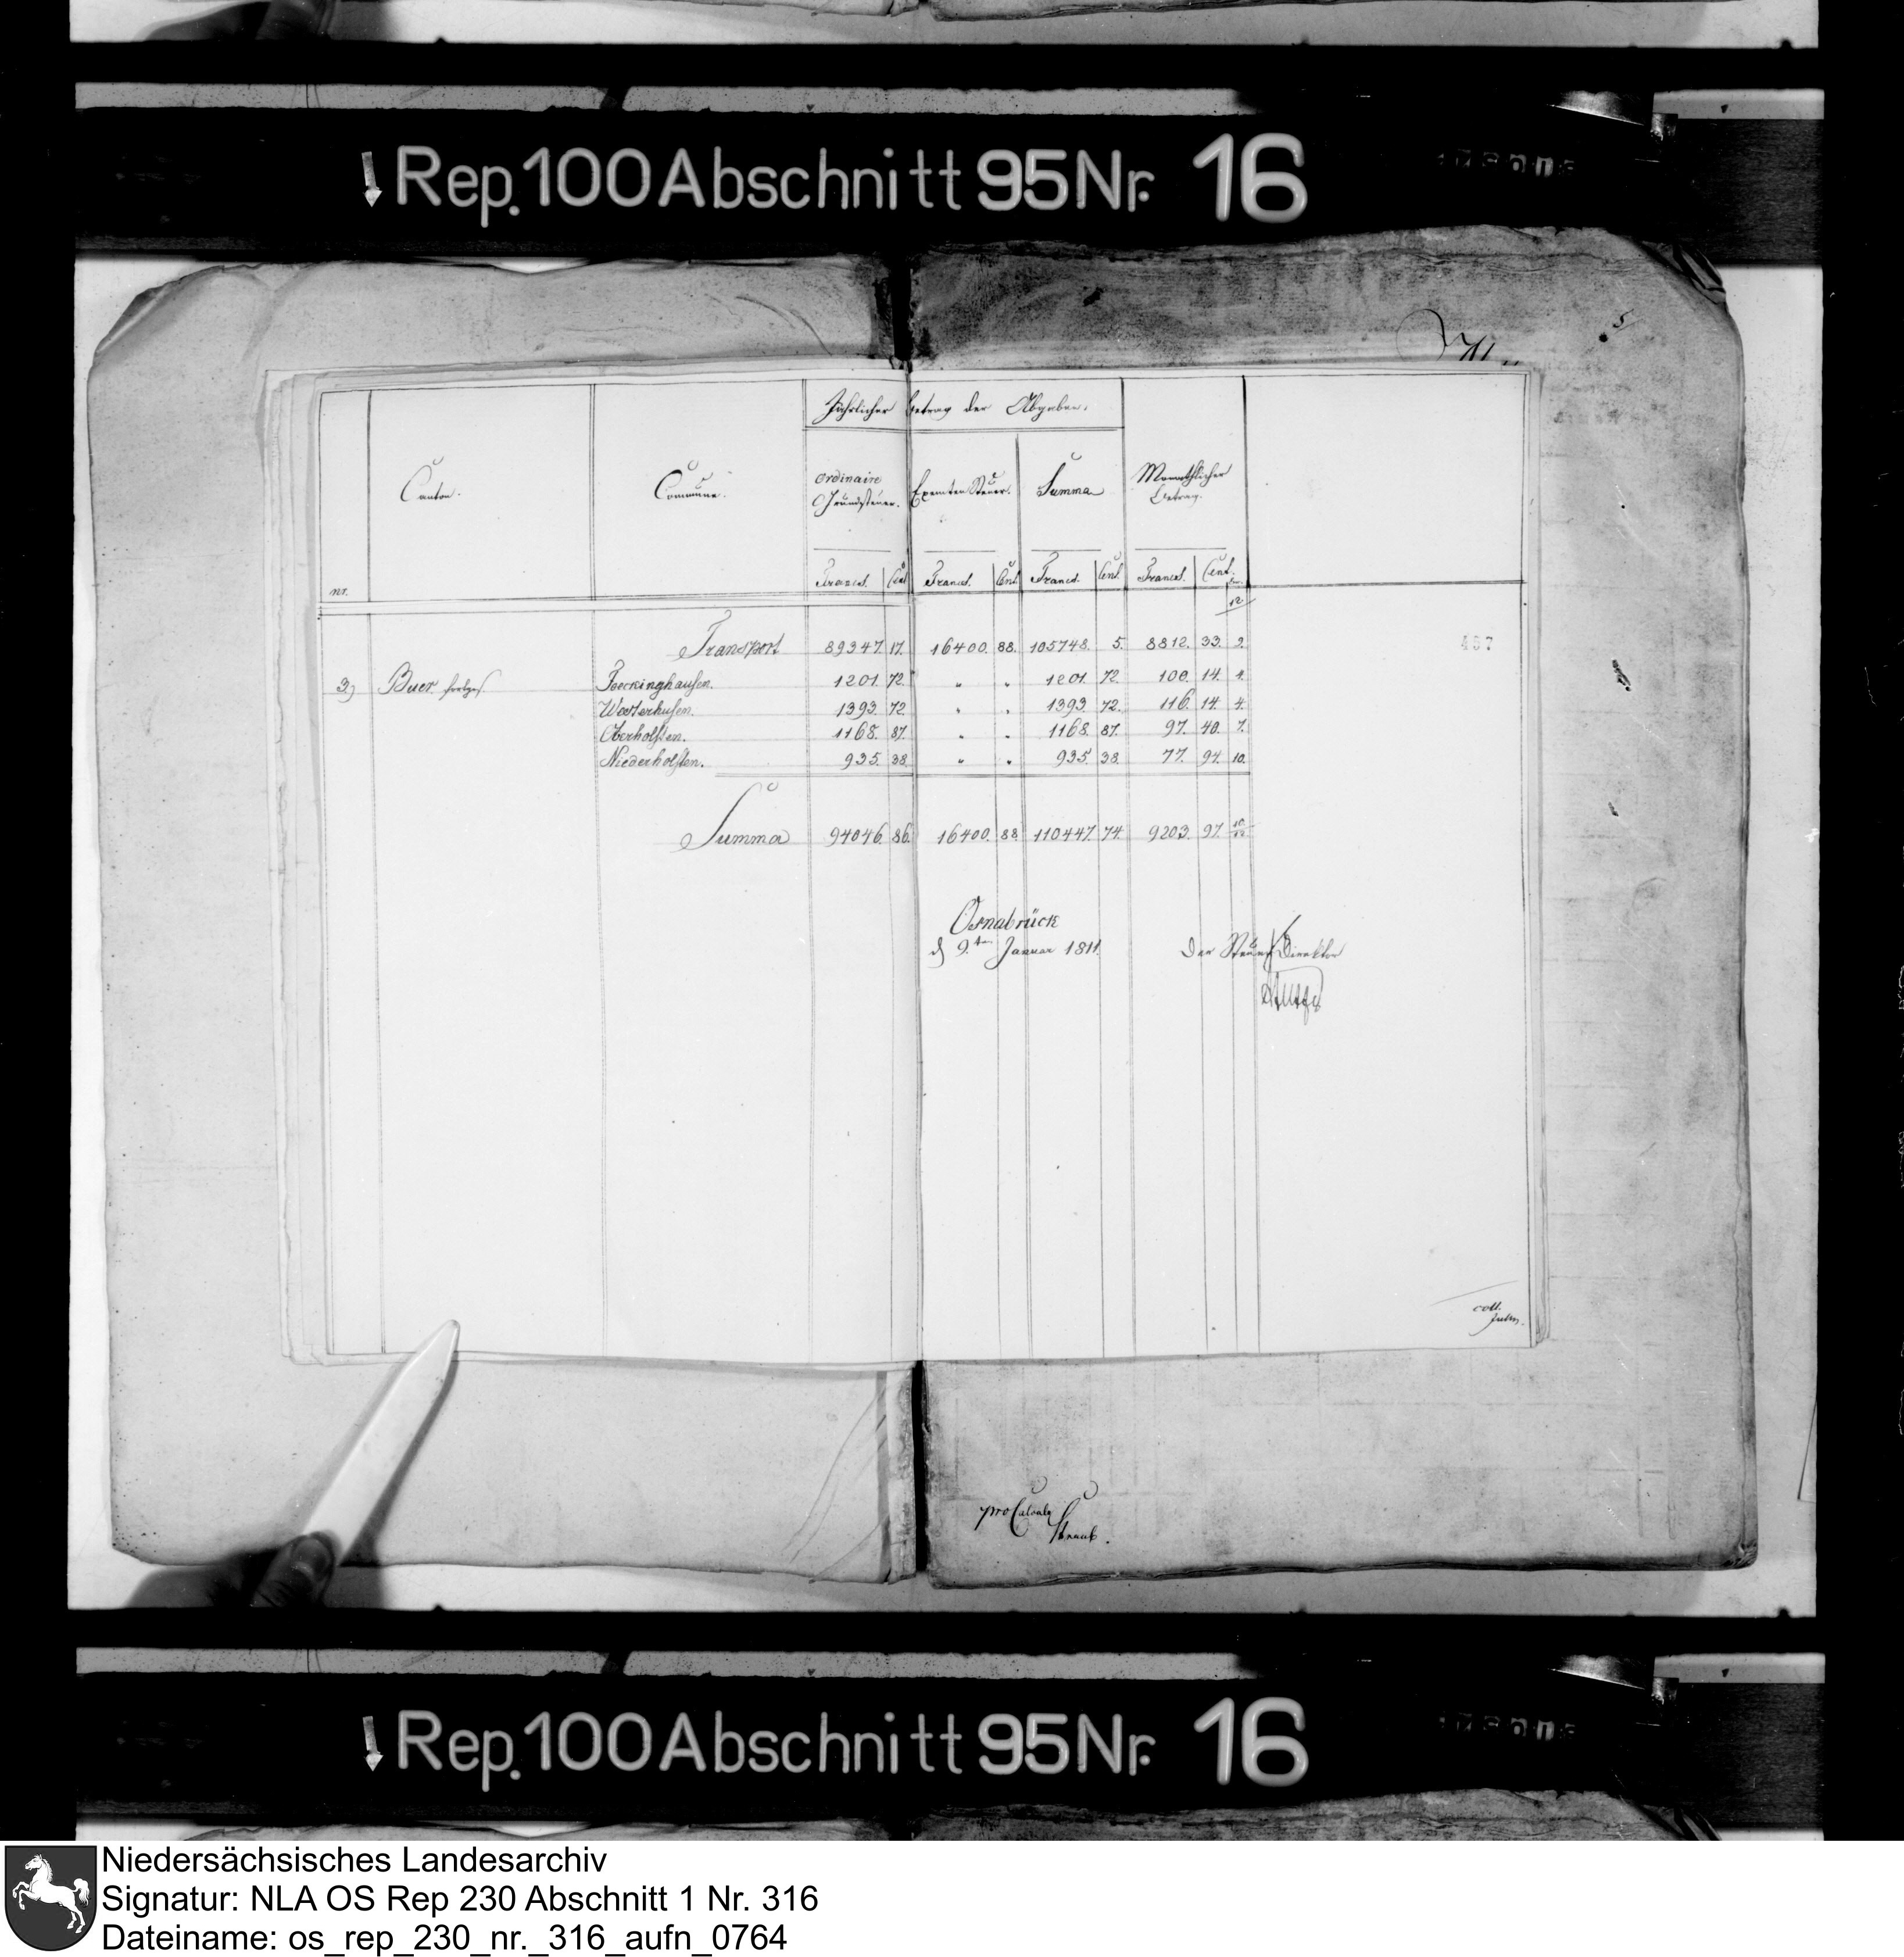 Rep. 100 Abschnitt 95 Nr. 16
5
Jährlicher Betrag der Abgaben.
Nr.
Canton.
Commune.
ordinaire Grundsteuer.
Exemten Steuer.
Summa
Monathlicher Betrag.
Francs. Cent Francs. Cent. Francs. Cent. Francs. Cent.
12
Transport 89347. 17. 16400. 88. 105748. 5. 8812. 33. 9.
457
3) Buer 1201. 72. " " 1201. 72. 100. 14. 4.
Westerhusen. 1393. 72. " " 1393. 72. 116. 14. 4.
Oberholsten. 1168. 87. " " 1168. 87. 97. 40. 7.
Niederholsten. 935. 38. " " 935. 38. 77. 94. 10.
Summa 94046. 86. 16400. 88. 110447. 74. 9203. 97. 10/12
Osnabrück
d 9ten Januar 1811.
Der Steuer Direktor
coll.
pro Calculo
Rep. 100 Abschnitt 95 Nr. 16
Niedersächsisches Landesarchiv
Signatur: NLA OS Rep 230 Abschnitt 1 Nr. 316
Dateiname: os_rep_230_nr._316_aufn_0764